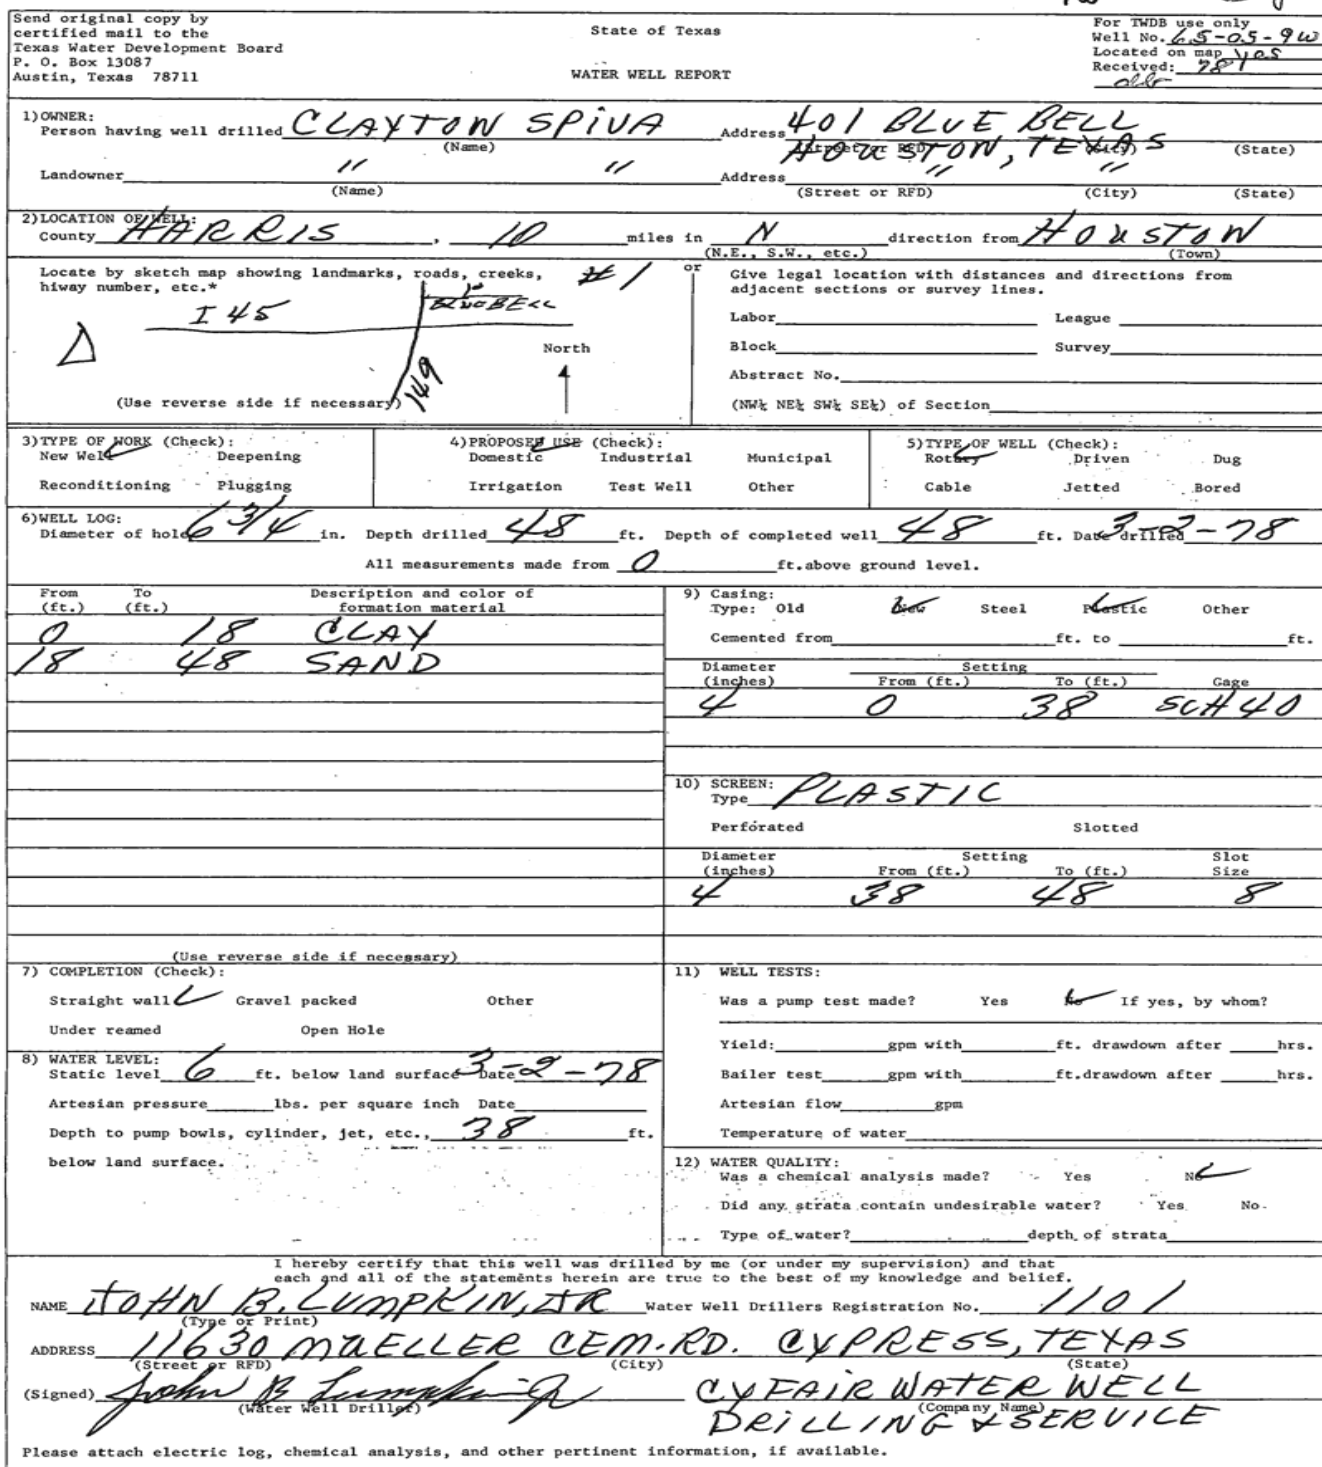 Send original copy by
certified mail to the
Texas Water Development Board
P. O. Box 13087
Austin, Texas 78711
State of Texas
WATER WELL REPORT
For TWDB use only
Well No. 65-05-9W
Located on map yes
Received: 781
1) OWNER:
Person having well drilled CLAYTON SPIVA Address 401 BLUE BELL
(Name) (Street or RFD) (City) (State)
HOUSTON, TEXAS
Landowner " " Address " "
(Name) (Street or RFD) (City) (State)
2) LOCATION OF WELL:
County HARRIS, 10 miles in N direction from HOUSTON
(N.E., S.W., etc.) (Town)
Locate by sketch map showing landmarks, roads, creeks,
hiway number, etc.*
#1
I 45
BLUE BELL
149
North
(Use reverse side if necessary)
or
Give legal location with distances and directions from
adjacent sections or survey lines.
Labor League
Block Survey
Abstract No.
(NW¼ NE¼ SW¼ SE¼) of Section
3) TYPE OF WORK (Check):
New Well Deepening
Reconditioning Plugging
4) PROPOSED USE (Check):
Domestic Industrial Municipal
Irrigation Test Well Other
5) TYPE OF WELL (Check):
Rotary Driven Dug
Cable Jetted Bored
6) WELL LOG:
Diameter of hole 6 3/4 in. Depth drilled 48 ft. Depth of completed well 48 ft. Date drilled 3-2-78
All measurements made from 0 ft. above ground level.
From (ft.) To (ft.) Description and color of formation material
0 18 CLAY
18 48 SAND
(Use reverse side if necessary)
9) Casing:
Type: Old New Steel Plastic Other
Cemented from ft. to ft.
Diameter (inches) Setting From (ft.) To (ft.) Gage
4 0 38 SCH 40
10) SCREEN:
Type PLASTIC
Perforated Slotted
Diameter (inches) Setting From (ft.) To (ft.) Slot Size
4 38 48 8
7) COMPLETION (Check):
Straight wall Gravel packed Other
Under reamed Open Hole
8) WATER LEVEL:
Static level 6 ft. below land surface Date 3-2-78
Artesian pressure lbs. per square inch Date
Depth to pump bowls, cylinder, jet, etc., 38 ft.
below land surface.
11) WELL TESTS:
Was a pump test made? Yes No If yes, by whom?
Yield: gpm with ft. drawdown after hrs.
Bailer test gpm with ft. drawdown after hrs.
Artesian flow gpm
Temperature of water
12) WATER QUALITY:
Was a chemical analysis made? Yes No
Did any strata contain undesirable water? Yes No
Type of water? depth of strata
I hereby certify that this well was drilled by me (or under my supervision) and that
each and all of the statements herein are true to the best of my knowledge and belief.
NAME JOHN B. LUMPKIN, JR Water Well Drillers Registration No. 1101
(Type or Print)
ADDRESS 11630 MUELLER CEM. RD. CYPRESS, TEXAS
(Street or RFD) (City) (State)
(Signed) John B Lumpkin Jr CYFAIR WATER WELL
(Water Well Driller) (Company Name)
DRILLING & SERVICE
Please attach electric log, chemical analysis, and other pertinent information, if available.